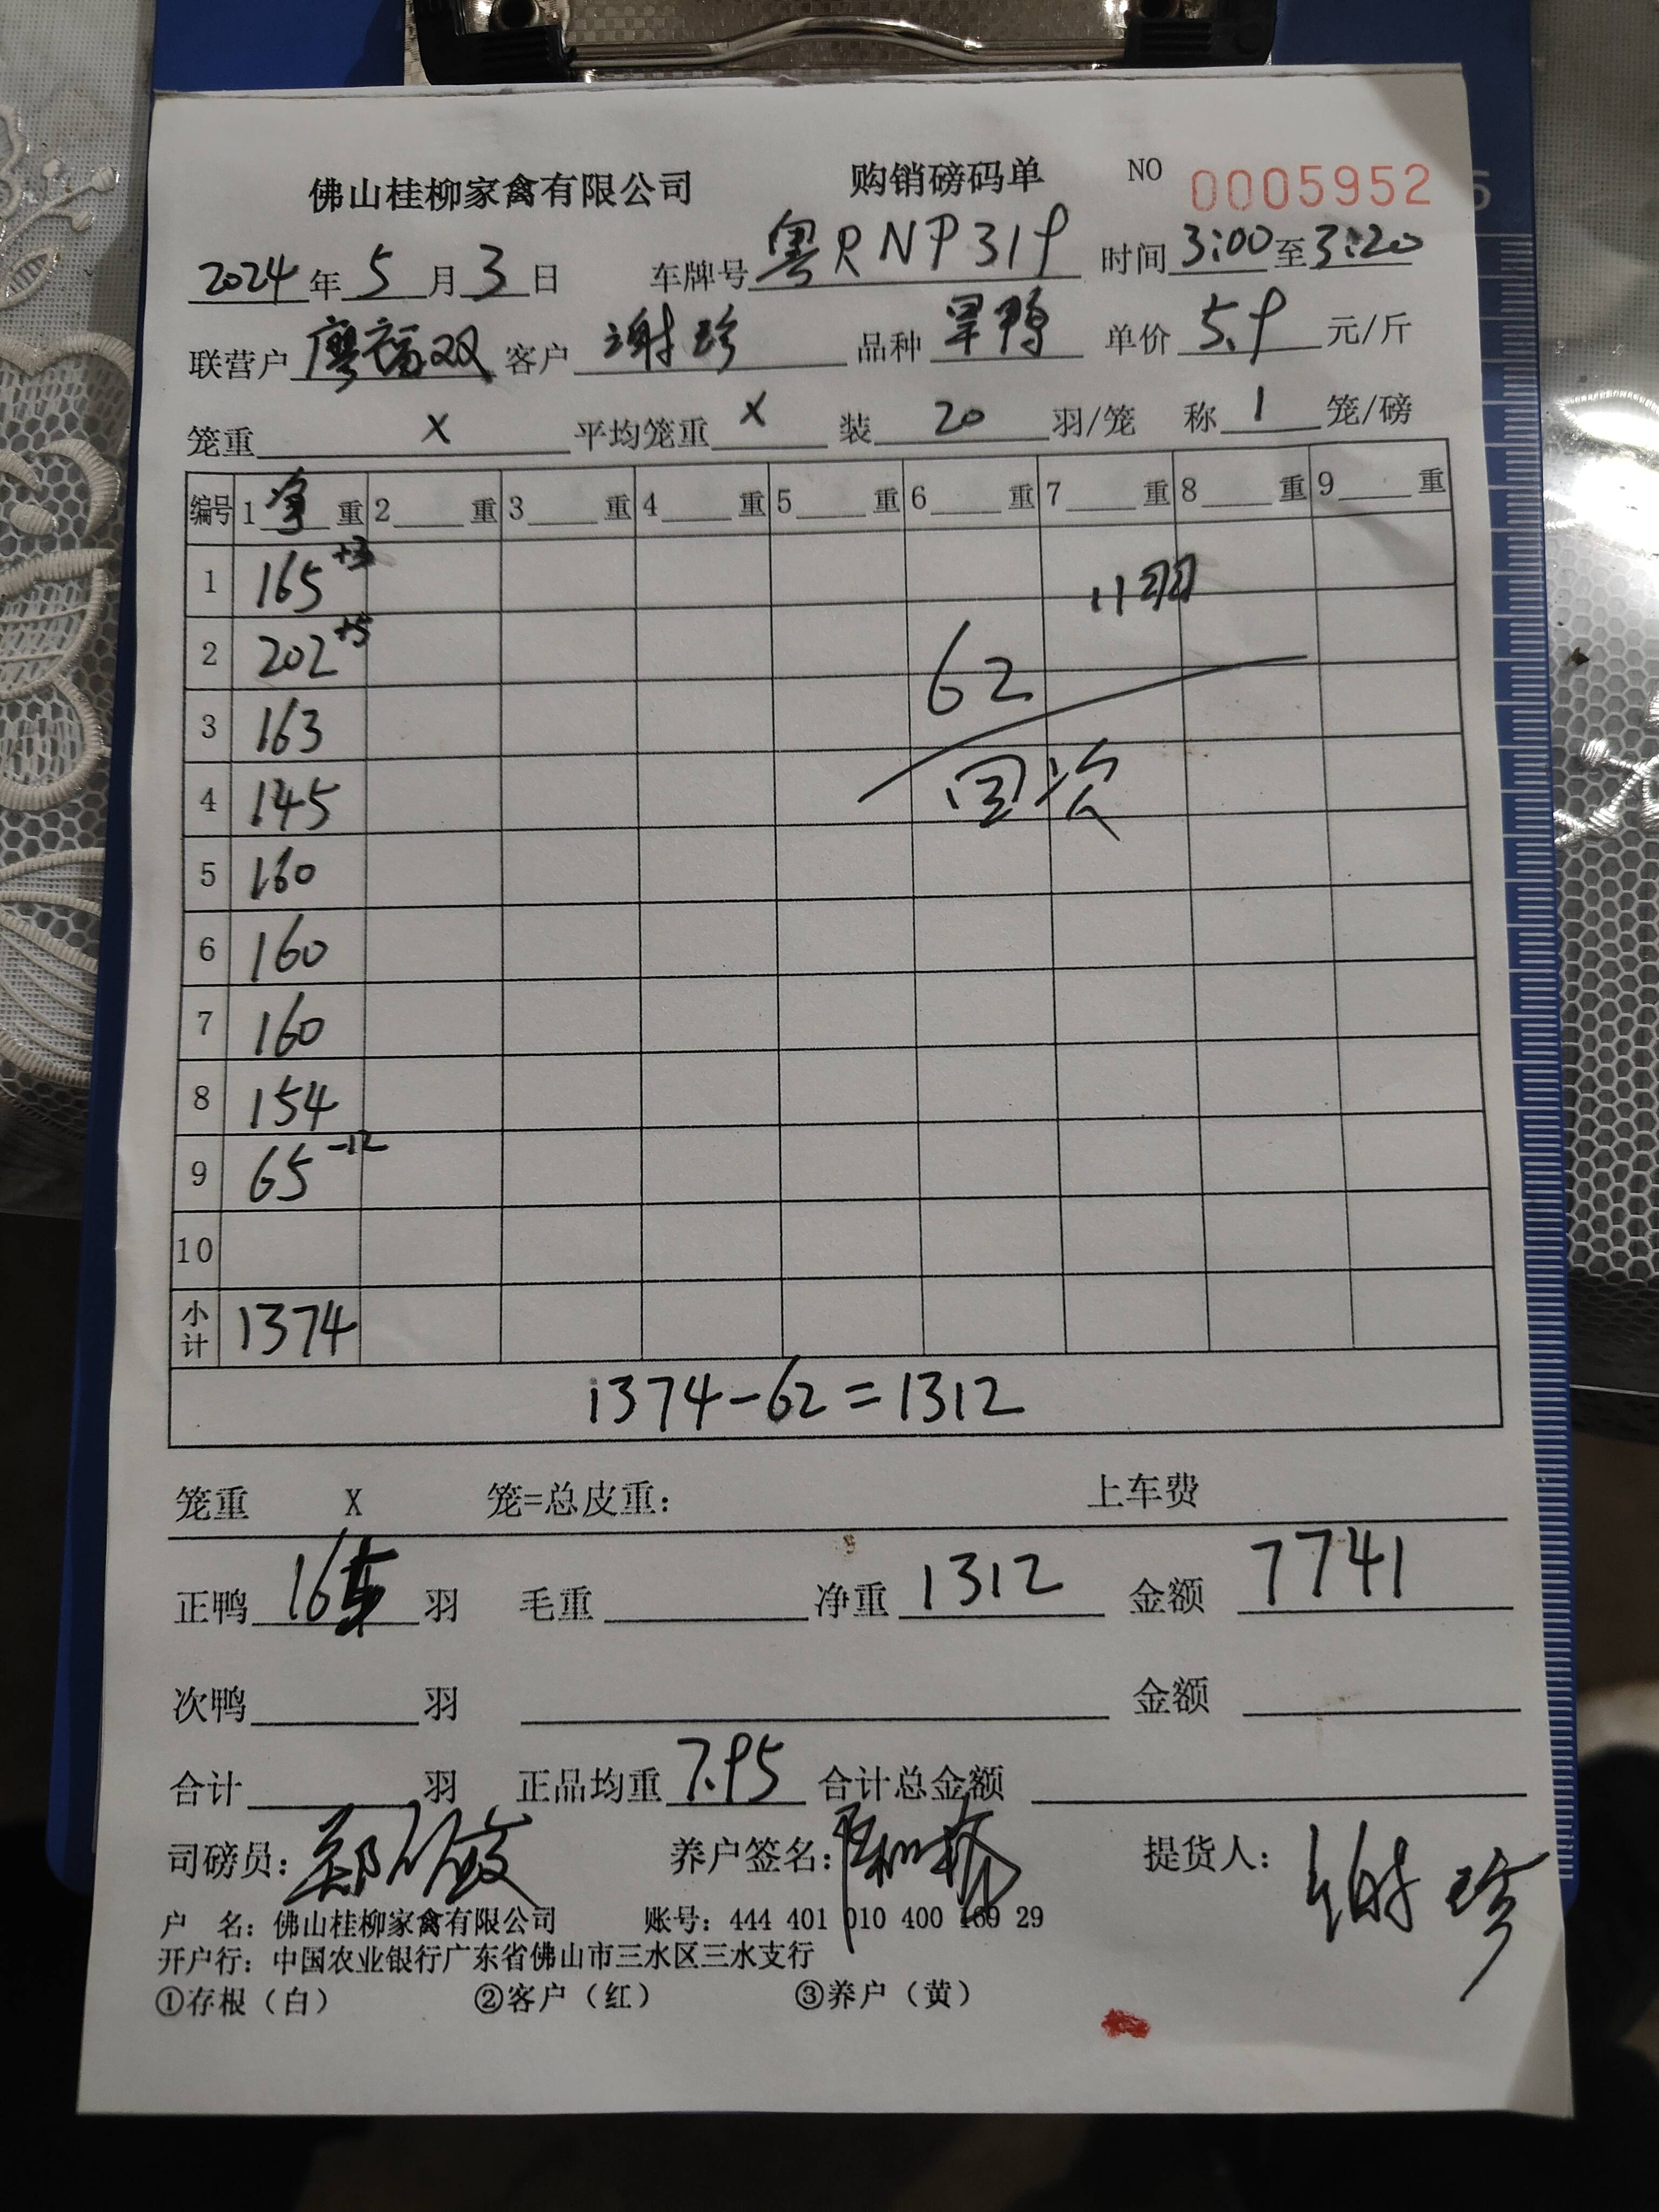 佛山桂柳家禽有限公司 购销磅码单 NO 0005952
2024年5月3日 车牌号 粤RNP319 时间 3:00至3:20
联营户 廖福双 客户 谢珍 品种 旱鸭 单价 5.9 元/斤
笼重 X 平均笼重 X 装 20 羽/笼 称 1 笼/磅
编号 1 净 重 2 重 3 重 4 重 5 重 6 重 7 重 8 重 9 重
1 165 +3 11羽
2 202 +5 62
3 163
4 145 回次
5 160
6 160
7 160
8 154
9 65 -12
10
小计 1374
1374-62=1312
笼重 X 笼=总皮重: 上车费
正鸭 165 羽 毛重 净重 1312 金额 7741
次鸭 羽 金额
合计 羽 正品均重 7.95 合计总金额
司磅员: 养户签名: 提货人: 谢珍
户 名: 佛山桂柳家禽有限公司 账号: 444 401 010 400 169 29
开户行: 中国农业银行广东省佛山市三水区三水支行
①存根（白） ②客户（红） ③养户（黄）